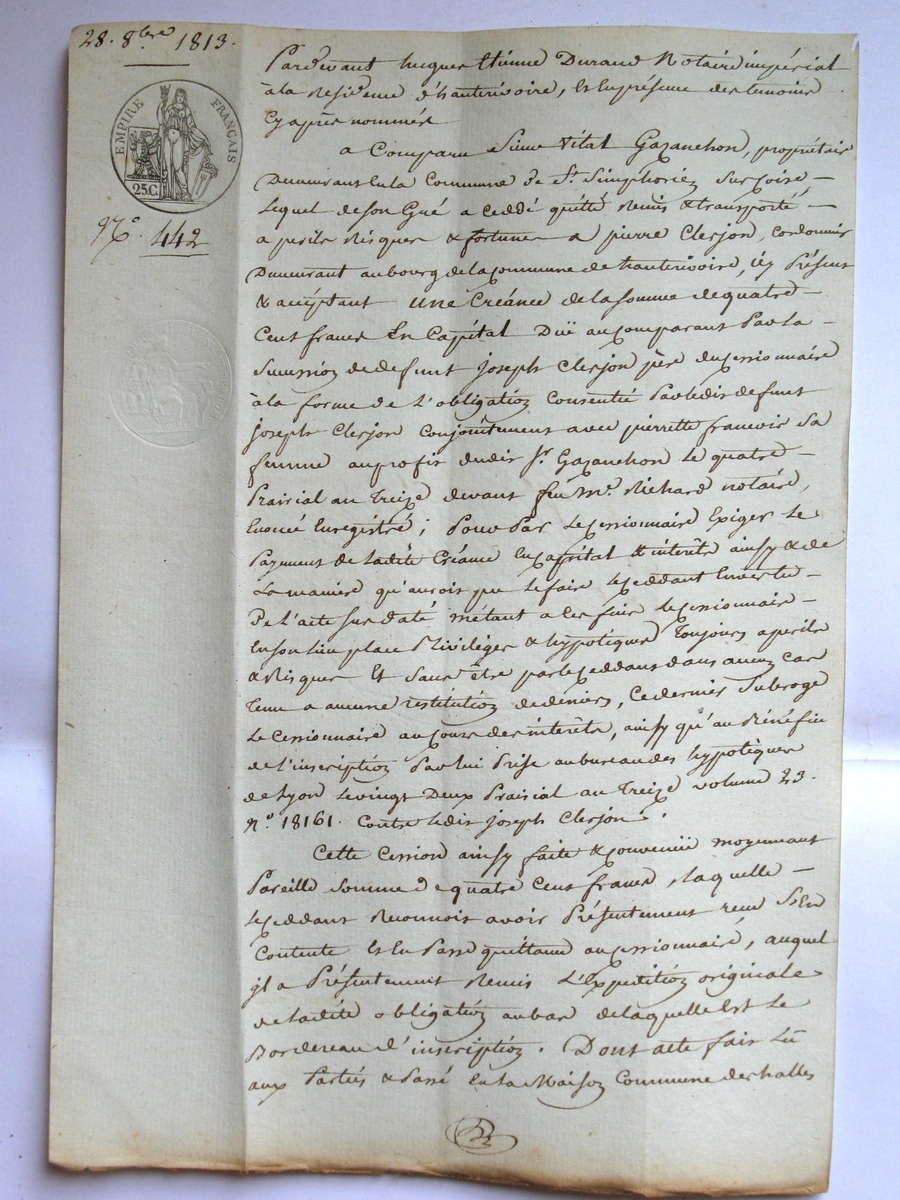 28. 8bre 1813.
EMPIRE FRANÇAIS
25C.
No. 442
Pardevant hugues Etienne Durand Notaire impérial
à la Residence d'hauterivoire, Et En présence des temoins
Cy après nommés
a Comparu Sieur Vital Gazanchon, propriétaire
Demeurant En la Commune de St. Simphorien Sur Coise —
Lequel de Son Gré a Ceddé quitté Remis & transporté —
a perils Risques & fortune a pierre Clerjon, Cordonnier
Demeurant au bourg de la Commune de hauterivoire, icy Présent
& acceptant une Créance de la Somme de quatre —
Cent francs En Capital Düe au Comparant Par La —
Succession de defunt Joseph Clerjon père du Cessionnaire
à la forme de L'obligation Consentie Par ledit defunt
Joseph Clerjon Conjointement avec pierrette francois Sa
femme au profit dudit Sr. Gazanchon Le quatre —
Prairial an Treize devant feu Me. Richard notaire,
Enregistré; Pour Par Le Cessionnaire Exiger Le
Payement de Ladite Créance En Capital & intérêts ainsy & de
La maniere qu'auroit pu Le faire Le Ceddant En vertu —
De L'acte Sus daté métant a Ces fins Le Cessionnaire —
En Son Lieu place Privilèges & hypotèques Toujours a perils
& Risques Et Sans être par le Ceddant dans aucun Cas
Tenu a aucune restitution de deniers, Ce dernier Subroge
Le Cessionnaire au Cours des intérêts, ainsy qu'au Bénéfice
de L'inscription Par Lui Prise au bureau des hypotèques
de Lyon Le vingt Deux Prairial an Treize volume 23.
No. 18161. Contre Ledit Joseph Clerjon.
Cette Cession ainsy faite & Convenüe moyennant
Pareille Somme de quatre Cent francs, Laquelle —
Le Ceddant Reconnoit avoir Présentement recu S'En
Contente Et En Passe quittance au Cessionnaire, auquel
il a Présentement Remis L'Expedition originale
de Ladite obligation au bas de Laquelle Est Le
Bordereau d'inscription. Dont acte fait Lû
aux Parties & Passé En La Maison Commune des halles